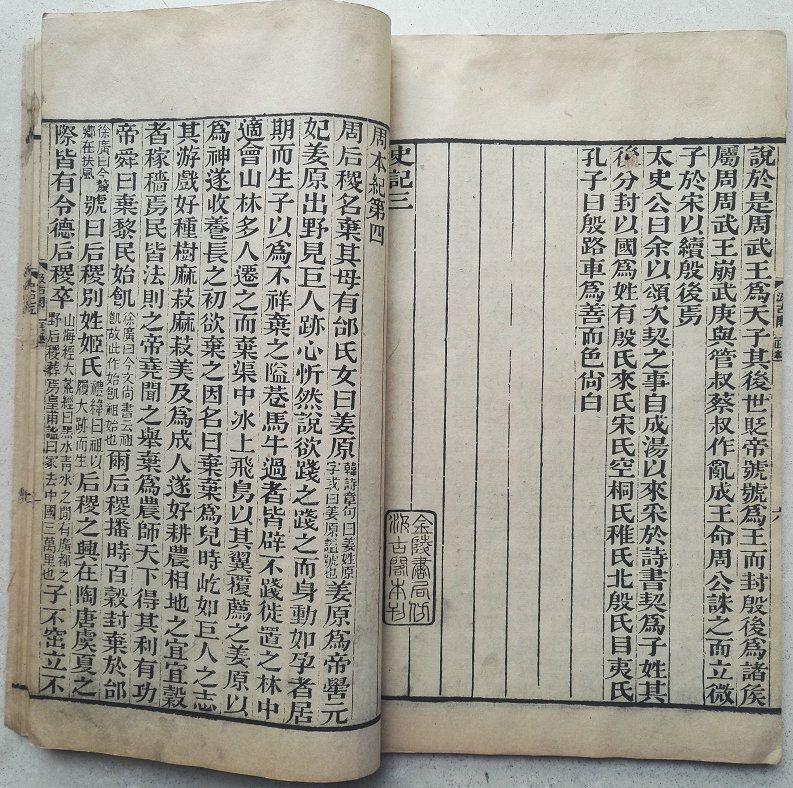 說於是周武王爲天子其後世貶帝號號爲王而封殷後爲諸侯
屬周周武王崩武庚與管叔蔡叔作亂成王命周公誅之而立微
子於宋以續殷後焉
太史公曰余以頌次契之事自成湯以來采於詩書契爲子姓其
後分封以國爲姓有殷氏來氏宋氏空桐氏稚氏北殷氏目夷氏
孔子曰殷路車爲善而色尚白
史記三
金陵書局仿
汲古閣本刊
周本紀第四
周后稷名棄其母有邰氏女曰姜原韓詩章句曰姜姓原字或曰姜原謚號也姜原爲帝嚳元
妃姜原出野見巨人跡心忻然說欲踐之踐之而身動如孕者居
期而生子以爲不祥棄之隘巷馬牛過者皆辟不踐徙置之林中
適會山林多人遷之而棄渠中冰上飛鳥以其翼覆薦之姜原以
爲神遂收養長之初欲棄之因名曰棄棄爲兒時屹如巨人之志
其游戲好種樹麻菽麻菽美及爲成人遂好耕農相地之宜宜穀
者稼穡焉民皆法則之帝堯聞之舉棄爲農師天下得其利有功
帝舜曰棄黎民始飢徐廣曰今文尚書云祖飢故此作始飢祖始也爾后稷播時百穀封棄於邰
徐廣曰今斄鄉在扶風號曰后稷別姓姬氏禮緯曰祖以履大跡而生后稷之興在陶唐虞夏之
際皆有令德后稷卒山海經大荒經曰黑水青水之閒有廣都之野后稷葬焉皇甫謐曰冢去中國三萬里也子不窋立不